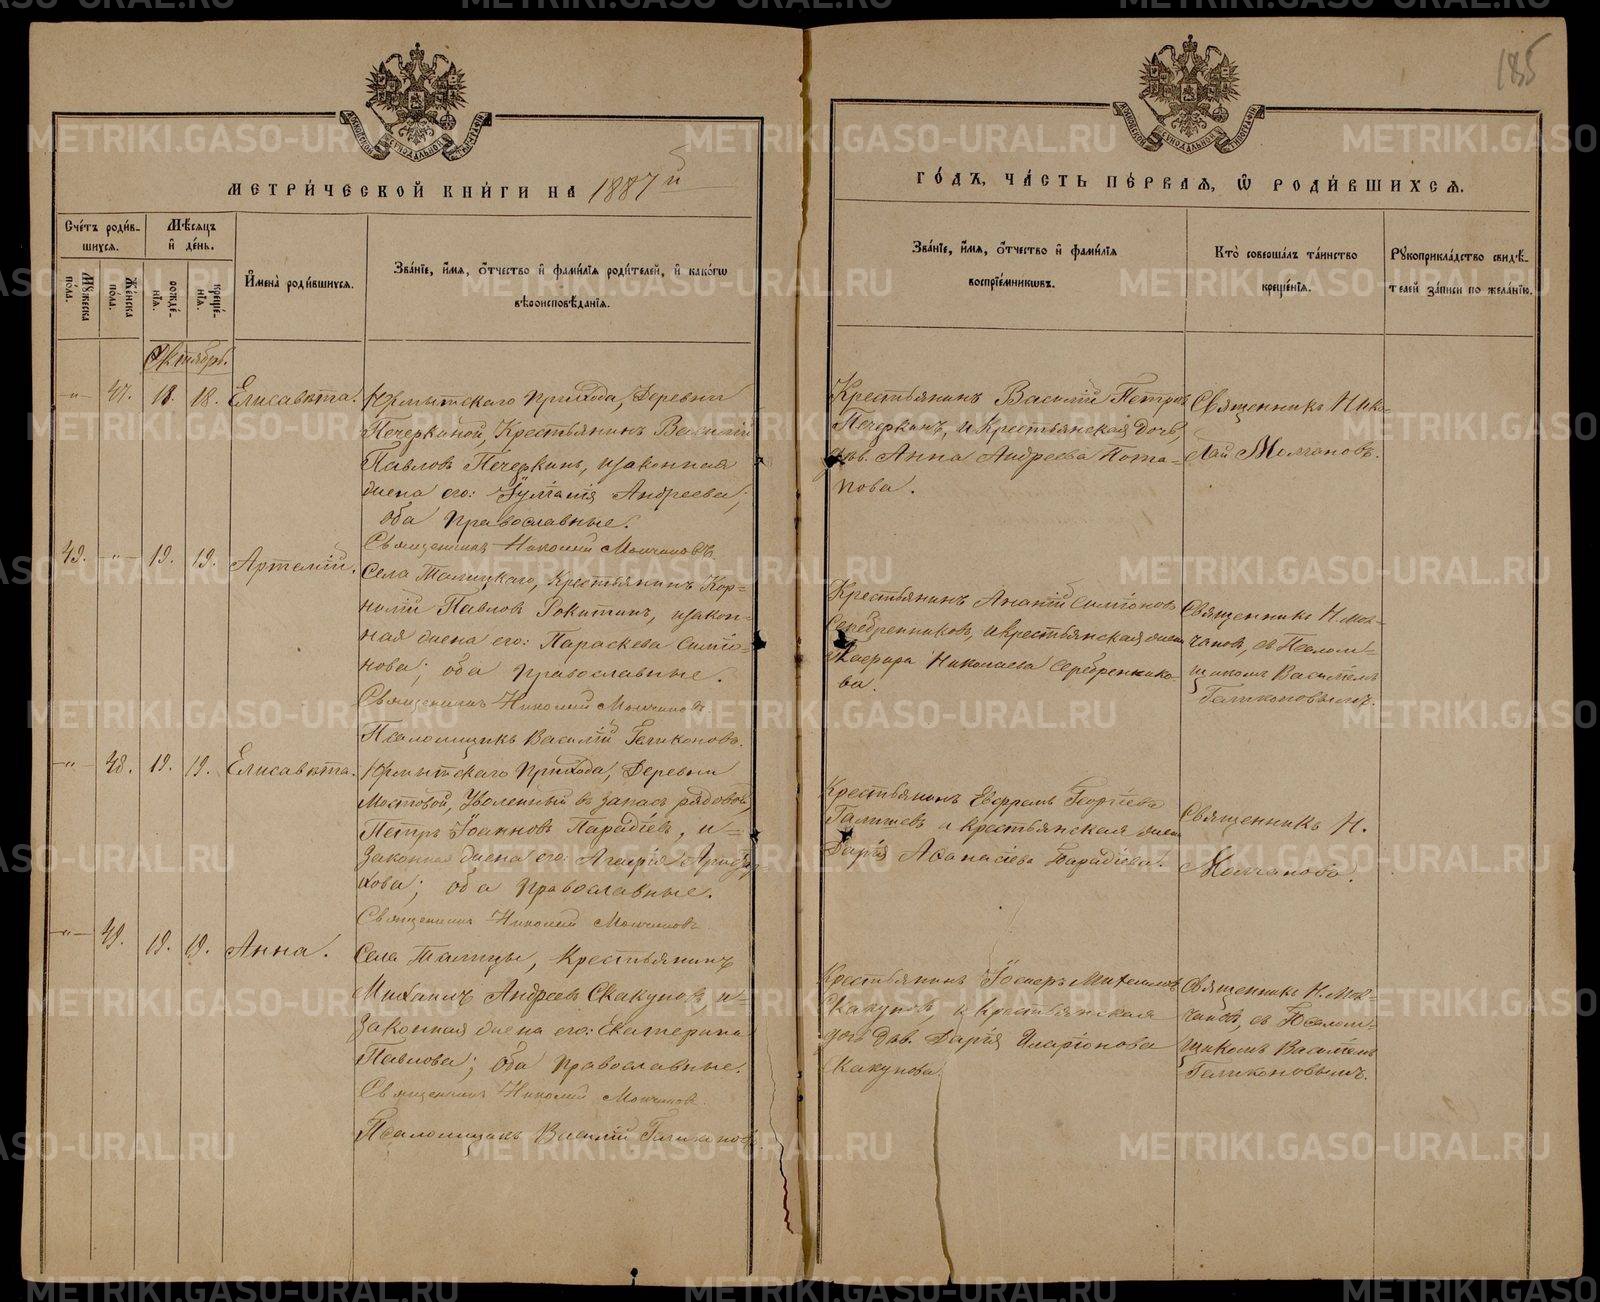 185
МЕТРИ́ЧЕСКОЙ КНИ́ГИ НА 1887й
ГО́ДЪ, ЧА́СТЬ ПЕ́РВАЯ, Ѿ РОДИ́ВШИХСЯ.
Сче́тъ роди́в-
шихся.
Мѣ́сяцъ
и҆ де́нь.
Мꙋ́жеска
по́ла.
Же́нска
по́ла.
рожде́-
нїя.
креще́-
нїя.
И҆мена̀ роди́вшихся.
Зва́нїе, и҆́мя, ѻ҆́тчество и҆ фами́лїя роди́телей, и҆ како́гѡ
вѣроисповѣ́данїя.
Зва́нїе, и҆́мя, ѻ҆́тчество и҆ фами́лїя
воспрїе́мникѡвъ.
Кто̀ соверша́лъ та́инство
креще́нїя.
Рꙋкоприкла́дство свидѣ́-
телей за́писи по жела́нїю.
Октябрь.
-"- 47. 18. 18. Елисавѣта.
Юрмытскаго прихода, Деревни
Печеркиной, Крестьянинъ Василій
Павловъ Печеркинъ, и законная
жена его: Іуліанія Андреева;
оба православные.
Священникъ Николай Молчановъ
Крестьянинъ Василій Петровъ
Печеркинъ, и крестьянская дочь,
дѣв. Анна Андреева Пота-
пова.
Священникъ Нико-
лай Молчановъ.
49. -"- 19. 19. Артемій.
Села Талицкаго, Крестьянинъ Кор-
нилій Павловъ Рокитинъ, и закон-
ная жена его: Параскева Симео-
нова; оба православные.
Священникъ Николай Молчановъ
Псаломщикъ Василій Геликоновъ.
Крестьянинъ Ананій Симіоновъ
Серебренниковъ, и крестьянская жена
Николаева Серебреннико-
ва.
Священникъ Н. Мол-
чановъ, съ Псалом-
щикомъ Василіемъ
Геликоновымъ.
-"- 48. 19. 19. Елисавѣта.
Юрмытскаго прихода, Деревни
Мостовой, Уволенный въ запасъ рядовой,
Петръ Іоанновъ Парадіевъ, и
законная жена его: Агафія
оба православные.
Священникъ Николай Молчановъ
Крестьянинъ Евфремъ Георгіевъ
Галишевъ и крестьянская жена
Дарія Афанасіева Парадіева.
Священникъ Н.
Молчановъ.
-"- 49. 19. 19. Анна.
Села Талицы, Крестьянинъ
Михаилъ Андреевъ Скакуновъ, и
законная жена его: Екатерина
Павлова; оба православные.
Священникъ Николай Молчановъ
Псаломщикъ Василій Геликоновъ
Крестьянинъ Іосифъ Михаиловъ
Скакуновъ, и крестьянская
дочь дѣв. Дарія Иларіонова
Какунова.
Священникъ Н. Мол-
чановъ, съ Псалом-
щикомъ Василіемъ
Геликоновымъ.
METRIKI.GASO-URAL.RU